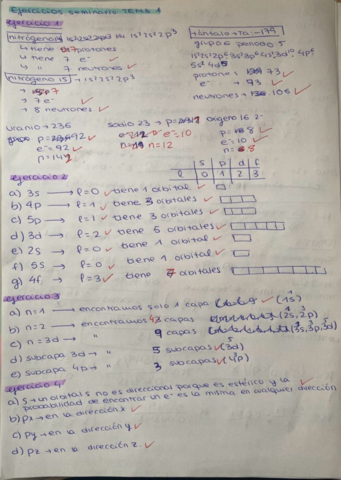 Ejercicios seminario TEMA 1
ejercicio 1:
nitrógeno 14 1s²2s²2p³
→ tiene 7 protones
→ tiene 7 e⁻
→ " 7 neutrones ✓
nitrógeno 15 → 1s²2s²2p³
→ 7
→ 7 e⁻ ✓
→ 8 neutrones ✓
tántalo → Ta → 179
grupo 5 periodo
protones 73
e⁻ → 73 ✓
neutrones → 106 ✓
uranio → 236
p = 92 ✓
e⁻ = 92 ✓
n = 144
sodio 23 →
e⁻ = 10
n = 12
oxígeno 16 2-
p = 8 ✓
e⁻ = 10 ✓
n = 8
ejercicio 2
s p d f
l 0 1 2 3
a) 3s → l=0 ✓ tiene 1 orbital ✓
b) 4p → l=1 ✓ tiene 3 orbitales ✓
c) 5p → l=1 ✓ tiene 3 orbitales ✓
d) 3d → l=2 ✓ tiene 5 orbitales ✓
e) 2s → l=0 ✓ tiene 1 orbital ✓
f) 5s → l=0 ✓ tiene 1 orbital ✓
g) 4f → l=3 ✓ tiene 7 orbitales
ejercicio 3
a) n=1 → encontramos solo 1 capa ✓ (1s)
b) n=2 → encontramos 4 capas (2s, 2p)
c) n=3 → " 9 capas (3s, 3p, 3d)
d) subcapa 3d → " 5 subcapas ✓ (3d)
e) subcapa 4p → " 3 subcapas ✓ (4p)
ejercicio 4:
a) s → un orbital s no es direccional porque es esférico y la
probabilidad de encontrar un e⁻ es la misma en cualquier dirección
b) px → en la dirección x ✓
c) py → en la dirección y ✓
d) pz → en la dirección z ✓